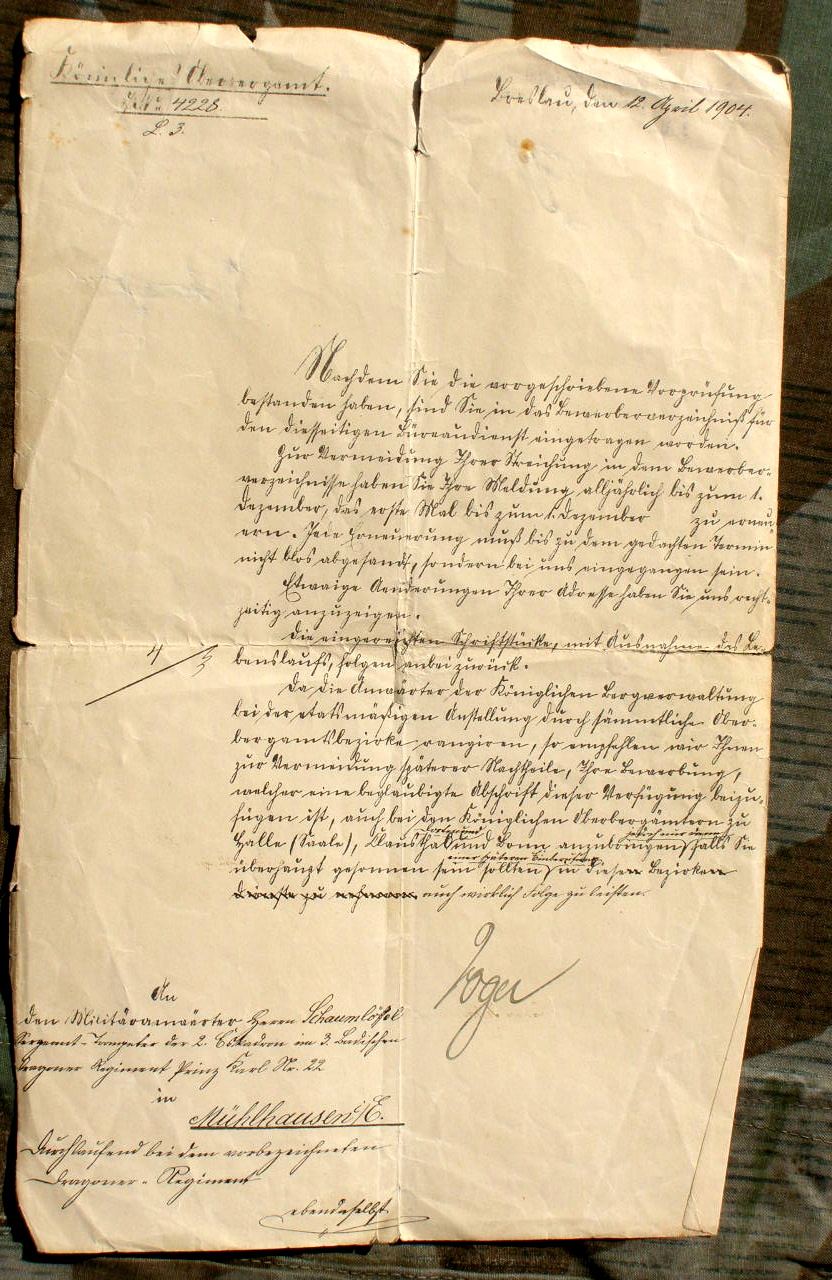 Königliches Oberbergamt.
No 4228.
L. 3.
Breslau, den 12. April 1904.
Nachdem Sie die vorgeschriebene Vorprüfung
bestanden haben, sind Sie in das Bewerberverzeichniß für
den diesseitigen Büreaudienst eingetragen worden.
Zur Vermeidung Ihrer Streichung in dem Bewerber-
verzeichnisse haben Sie Ihre Meldung alljährlich bis zum 1.
Dezember, das erste Mal bis zum 1. Dezember zu erneu-
ern. Jede Erneuerung muß bis zu dem gedachten Termin
nicht blos abgesandt, sondern bei uns eingegangen sein.
Etwaige Aenderungen Ihrer Adresse haben Sie uns recht-
zeitig anzuzeigen.
Die eingereichten Schriftstücke, mit Ausnahme des Le-
benslaufs, folgen anbei zurück.
4/3
Da die Anwärter der Königlichen Bergverwaltung
bei der etatsmäßigen Anstellung durch sämmtliche Ober-
bergamtsbezirke rangiren, so empfehlen wir Ihnen
zur Vermeidung späterer Nachtheile, Ihre Bewerbung,
welcher eine beglaubigte Abschrift dieser Verfügung beizu-
fügen ist, auch bei den Königlichen Oberbergämtern zu
Halle (Saale), Clausthal und Bonn anzubringen, falls Sie
jedoch nur dann
überhaupt gesonnen sein sollten, in diesen Bezirken
einer späteren Einberufung
dienste zu nehmen, auch wirklich Folge zu leisten.
An
den Militäranwärter Herrn Schaumlöffel
Sergeant-Trompeter der 2. Eskadron im 3. Badischen
Dragoner Regiment Prinz Karl Nr. 22
in
Mühlhausen i/E.
Durchlaufend bei dem vorbezeichneten
Dragoner-Regiment
ebendaselbst